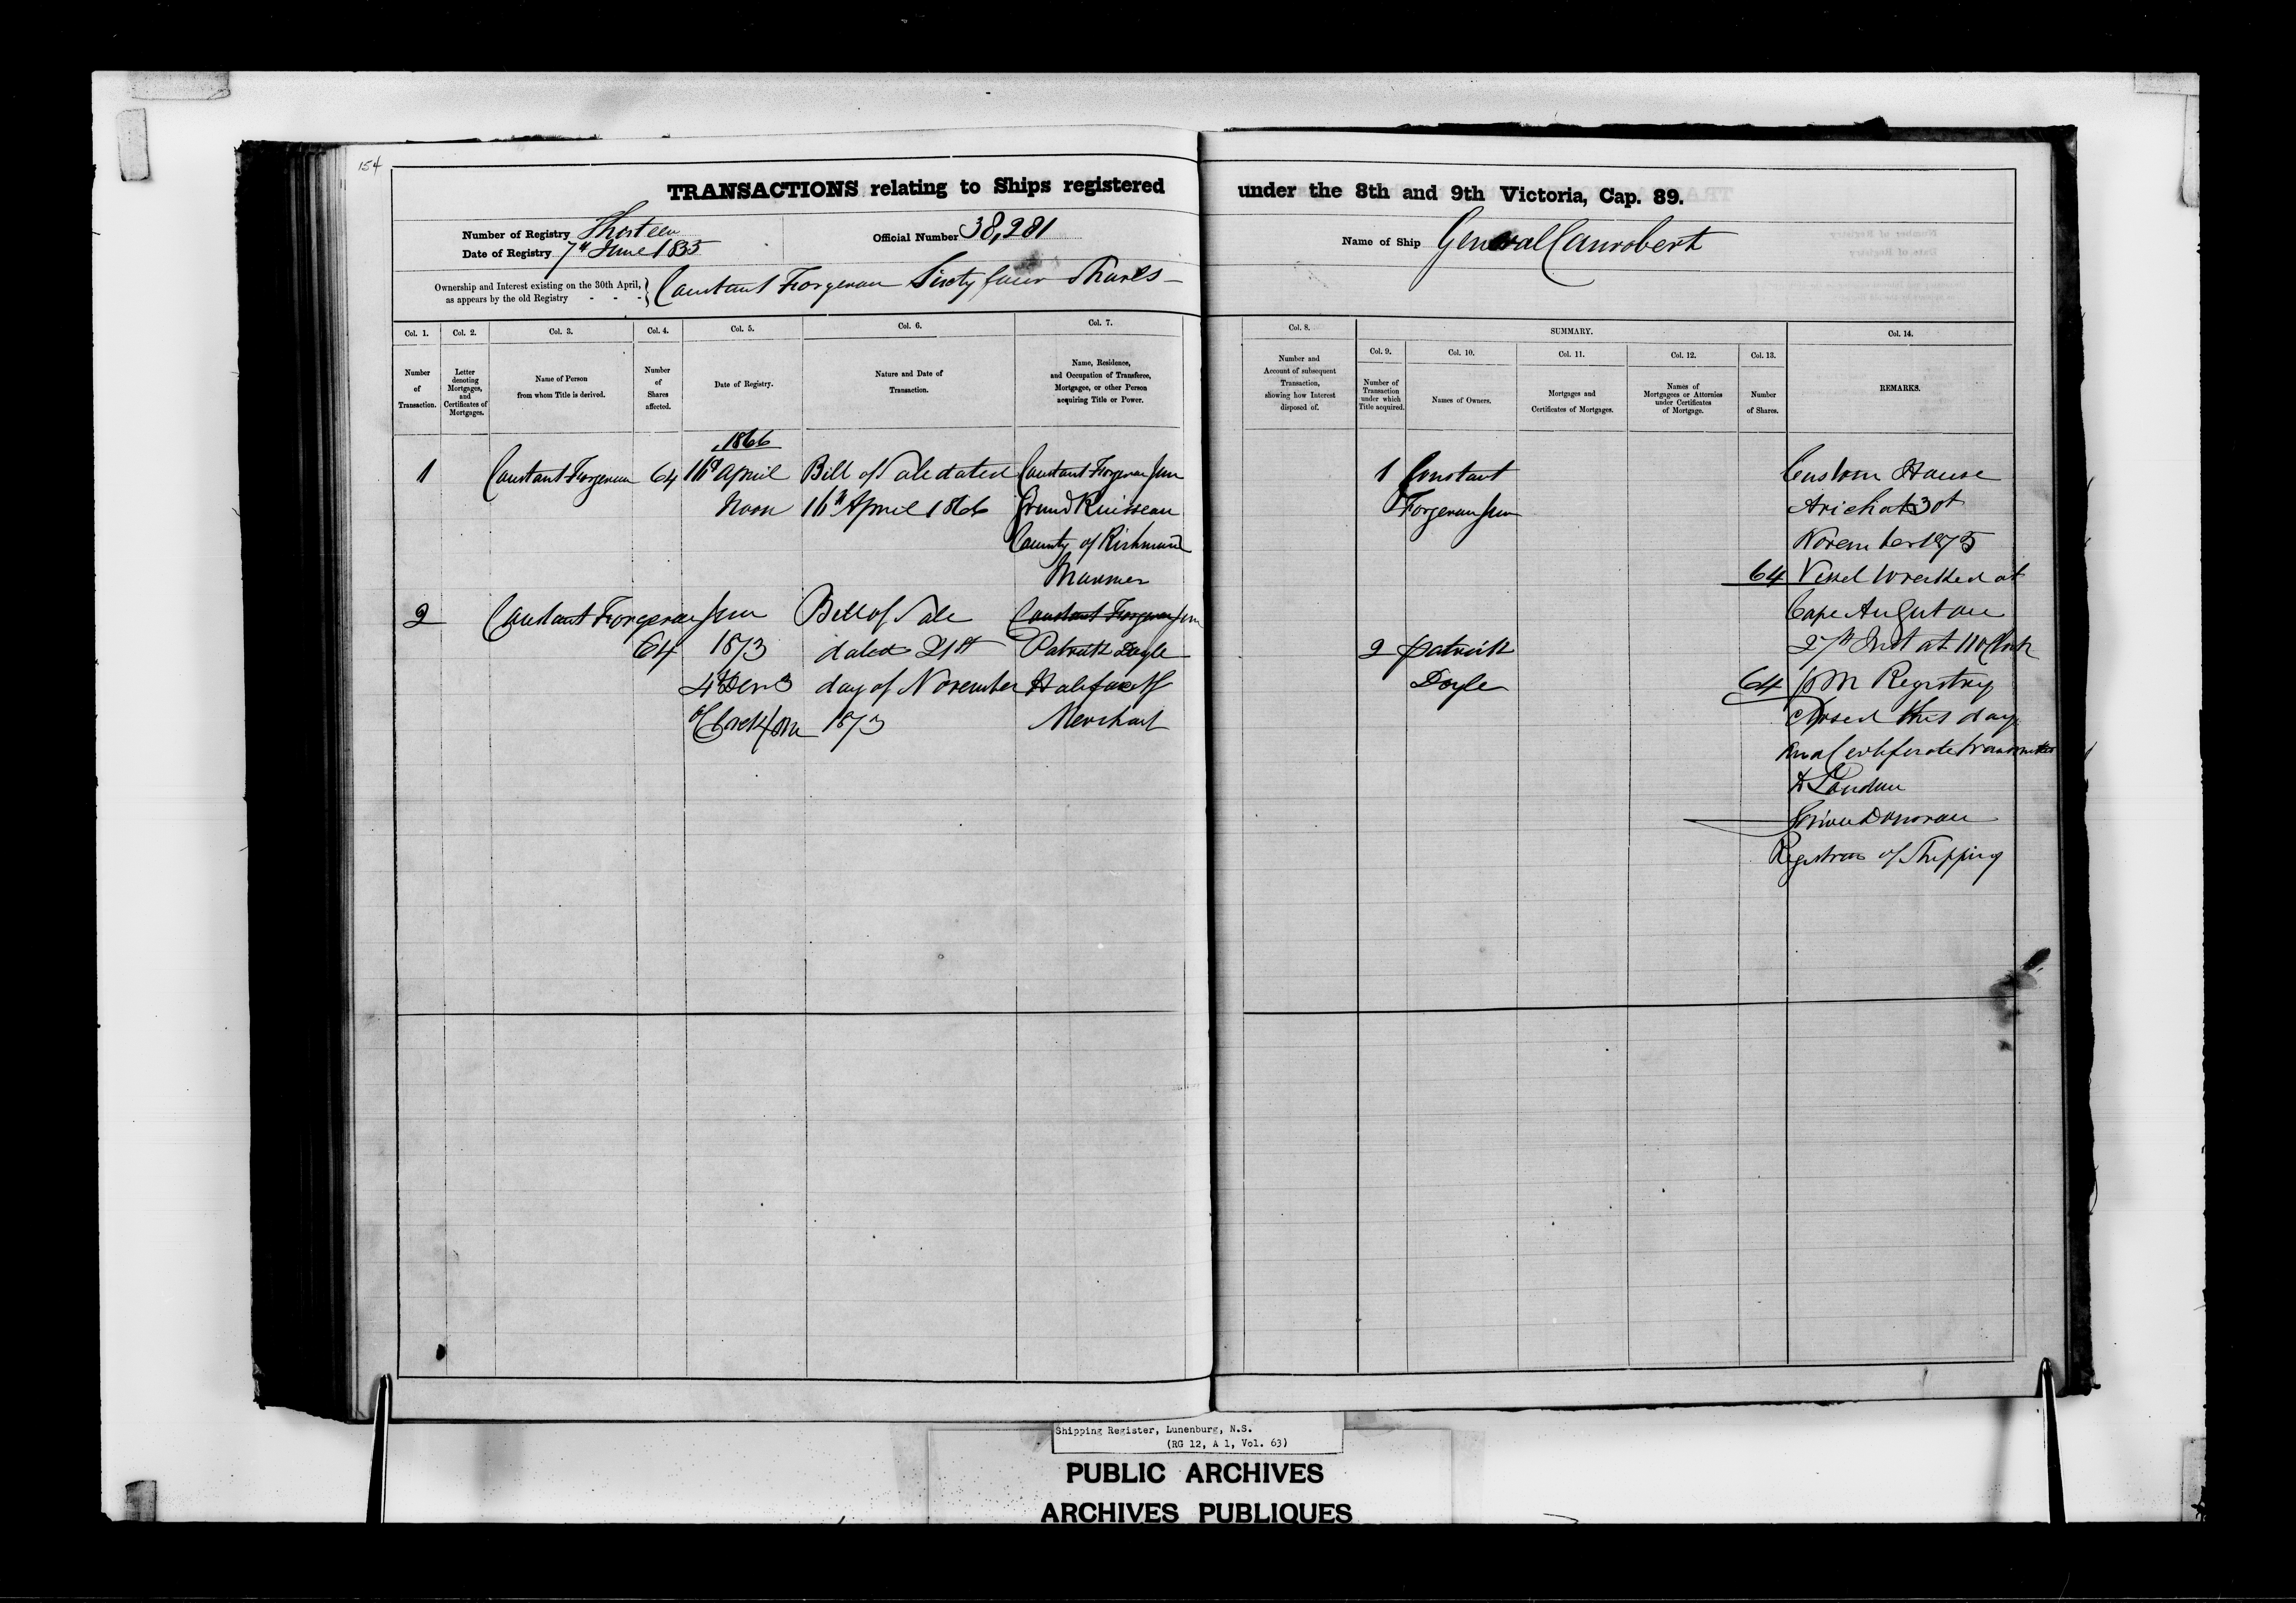 154
TRANSACTIONS relating to Ships registered under the 8th and 9th Victoria, Cap. 89.
Number of Registry Thirteen
Official Number 38,281
Name of Ship General Canrobert
Date of Registry 7th June 1855
Ownership and Interest existing on the 30th April, as appears by the old Registry - - - } Constant Forgeron Sixty four Shares
Col. 1. Number of Transaction.
Col. 2. Letter denoting Mortgages, and Certificates of Mortgages.
Col. 3. Name of Person from whom Title is derived.
Col. 4. Number of Shares affected.
Col. 5. Date of Registry.
Col. 6. Nature and Date of Transaction.
Col. 7. Name, Residence, and Occupation of Transferee, Mortgagee, or other Person acquiring Title or Power.
Col. 8. Number and Account of subsequent Transaction, showing how Interest disposed of.
SUMMARY.
Col. 9. Number of Transaction under which Title acquired.
Col. 10. Names of Owners.
Col. 11. Mortgages and Certificates of Mortgages.
Col. 12. Names of Mortgagees or Attornies under Certificates of Mortgage.
Col. 13. Number of Shares.
Col. 14. REMARKS.
1866
1 Constant Forgeron 64 16th April Bill of Sale dated Constant Forgeron Jun
Noon 16th April 1866 Grand Ruisseau
County of Richmond
Mariner
2 Constant Forgeron Jun Bill of Sale Constant Forgeron Jun
64 1873 dated 21st Patrick Doyle
4 Dec 3 day of November Halifax
o'Clock 1873 Merchant
1 Constant
Forgeron Jun
64
2 Patrick
Doyle 64
Custom House
Arichat 30t
November 1875
Vessel wrecked at
Cape
27th Inst at
PM Registry
closed this day
and Certificate transmitted
to London
Donovan
Registrar of Shipping
Shipping Register, Lunenburg, N.S.
(RG 12, A 1, Vol. 63)
PUBLIC ARCHIVES
ARCHIVES PUBLIQUES